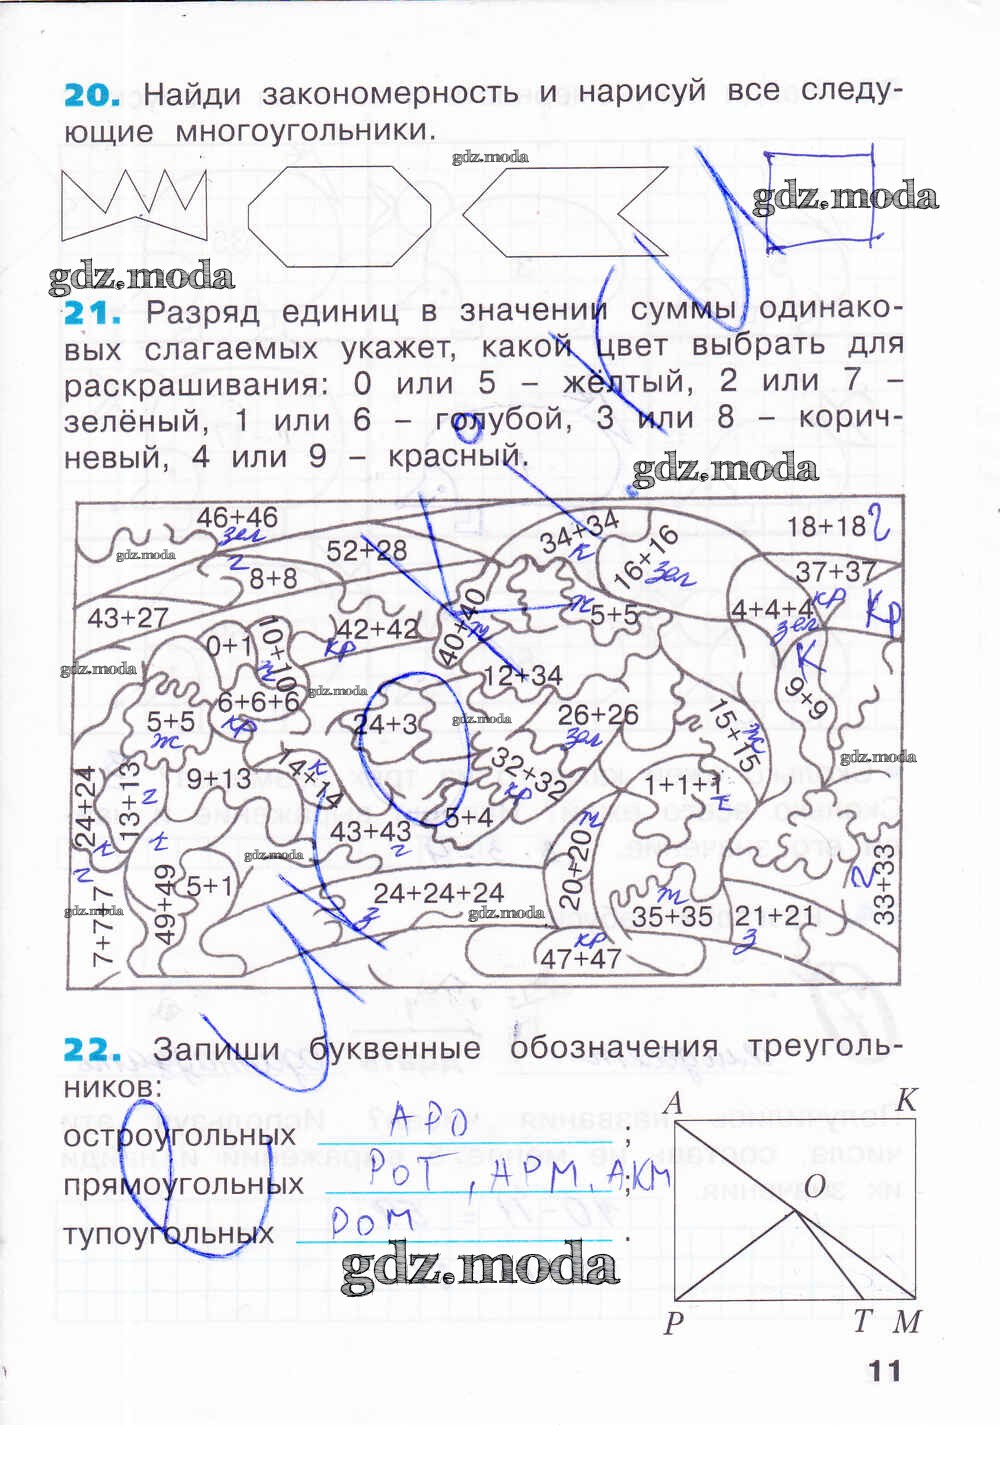 20. Найди закономерность и нарисуй все следу-
ющие многоугольники.
gdz.moda
gdz.moda
gdz.moda
21. Разряд единиц в значении суммы одинако-
вых слагаемых укажет, какой цвет выбрать для
раскрашивания: 0 или 5 – жёлтый, 2 или 7 –
зелёный, 1 или 6 – голубой, 3 или 8 – корич-
невый, 4 или 9 – красный.
gdz.moda
46+46
зел
34+34
к
18+18 г
gdz.moda
52+28
16+16
зел
37+37
кр
8+8
г
43+27
40+40
ж
5+5
ж
4+4+4
зел
Кр
0+1
10+10
ж
42+42
кр
К
gdz.moda
12+34
9+9
6+6+6
кр
gdz.moda
5+5
ж
24+3
gdz.moda
26+26
зел
15+15
ж
gdz.moda
24+24
13+13
г
9+13
14+14
к
32+32
кр
1+1+1
43+43
г
5+4
gdz.moda
20+20
ж
33+33
49+49
5+1
24+24+24
з
gdz.moda
7+7+7
gdz.moda
35+35
ж
21+21
з
кр
47+47
22. Запиши буквенные обозначения треуголь-
ников:
остроугольных АРО ;
прямоугольных РОТ, АРМ, АКМ ;
тупоугольных РОМ .
gdz.moda
A
K
O
P
T
M
11